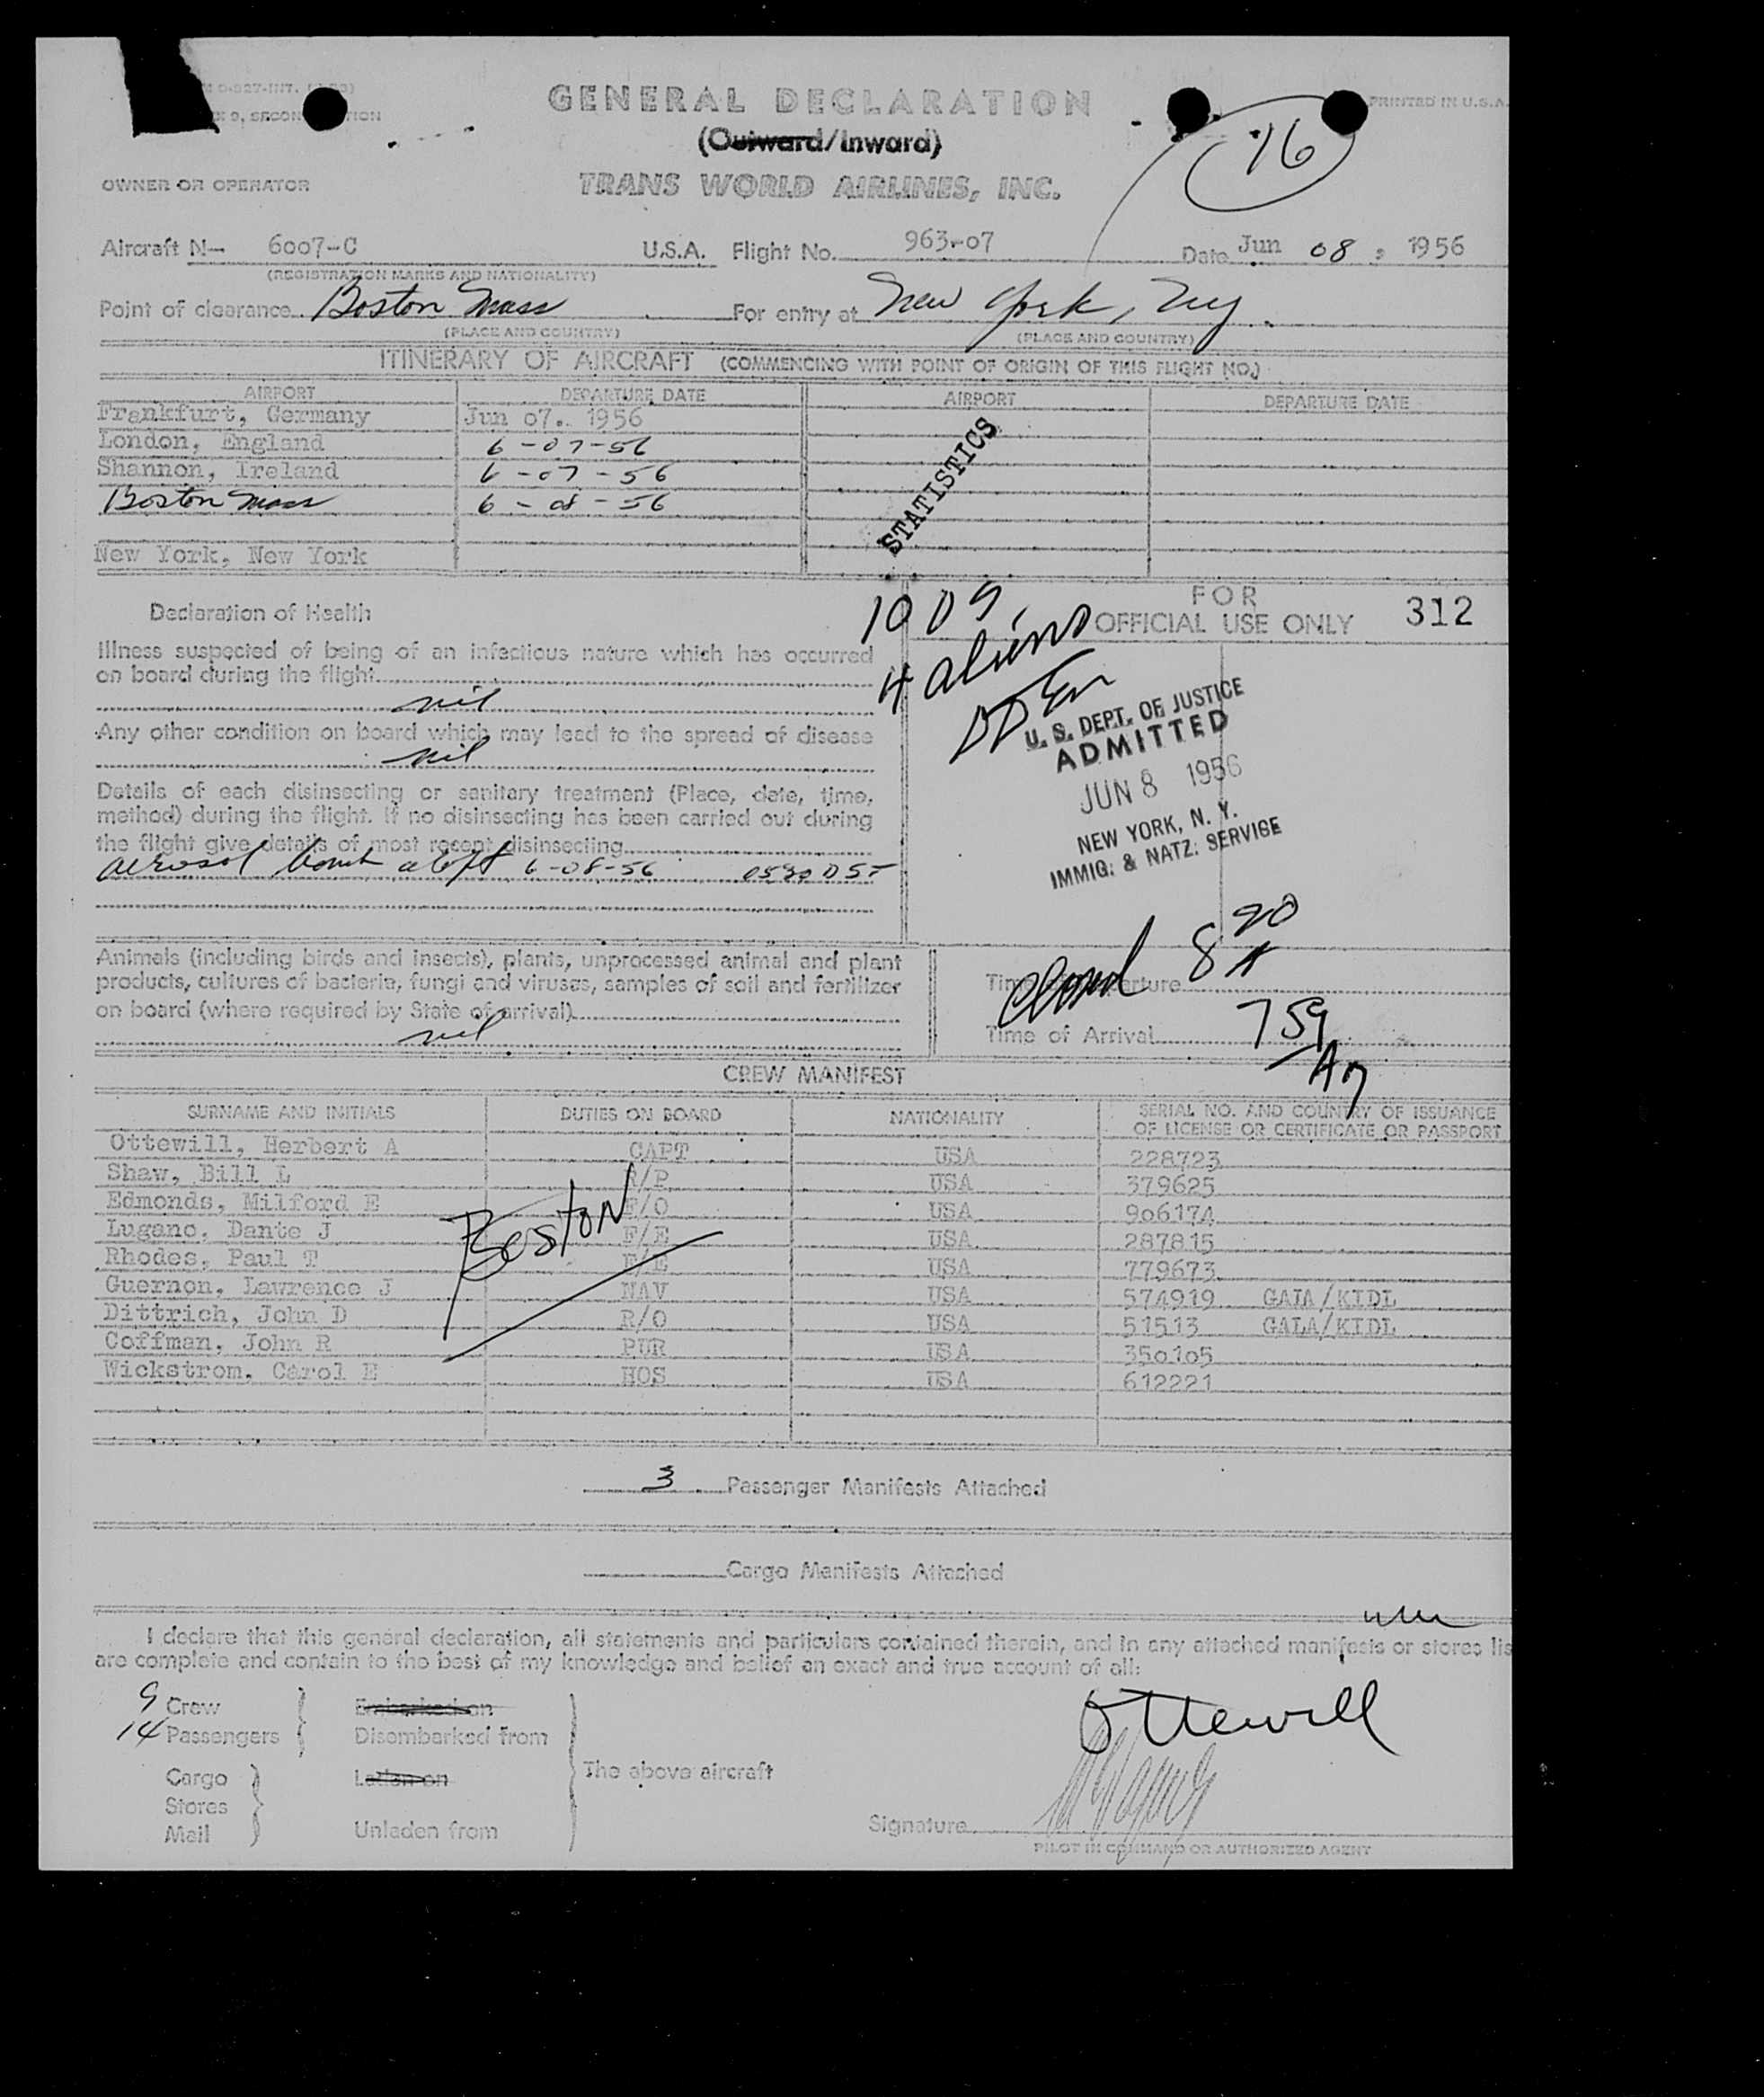 GENERAL DECLARATION
PRINTED IN U.S.A.
(Outward/Inward)
16
OWNER OR OPERATOR
TRANS WORLD AIRLINES, INC.
Aircraft N— 6007-C U.S.A. Flight No. 963-07 Date Jun 08, 1956
(REGISTRATION MARKS AND NATIONALITY)
Point of clearance Boston Mass For entry at New York, NY
(PLACE AND COUNTRY) (PLACE AND COUNTRY)
ITINERARY OF AIRCRAFT (COMMENCING WITH POINT OF ORIGIN OF THIS FLIGHT NO.)
AIRPORT DEPARTURE DATE AIRPORT DEPARTURE DATE
Frankfurt, Germany Jun 07. 1956
London, England 6-07-56
Shannon, Ireland 6-07-56
Boston Mass 6-08-56
New York, New York
STATISTICS
Declaration of Health
FOR
OFFICIAL USE ONLY 312
10 US
4 aliens
Illness suspected of being of an infectious nature which has occurred
on board during the flight
nil
Any other condition on board which may lead to the spread of disease
nil
U. S. DEPT. OF JUSTICE
ADMITTED
JUN 8 1956
NEW YORK, N. Y.
IMMIG. & NATZ. SERVICE
Details of each disinsecting or sanitary treatment (Place, date, time,
method) during the flight. If no disinsecting has been carried out during
the flight give details of most recent disinsecting
aerosol bomb aloft 6-08-56
Animals (including birds and insects), plants, unprocessed animal and plant
products, cultures of bacteria, fungi and viruses, samples of soil and fertilizer
on board (where required by State of arrival)
nil
Closed 8 20 A
Time of Arrival 7 59 Am
CREW MANIFEST
SURNAME AND INITIALS DUTIES ON BOARD NATIONALITY SERIAL NO. AND COUNTRY OF ISSUANCE
OF LICENSE OR CERTIFICATE OR PASSPORT
Ottewill, Herbert A CAPT USA 228723
Shaw, Bill L R/P USA 379625
Edmonds, Milford E F/O USA 906174
Lugano, Dante J F/E USA 287815
Rhodes, Paul T F/E USA 779673
Guernon, Lawrence J NAV USA 574919 GAIA/KIDL
Dittrich, John D R/O USA 51513 GALA/KIDL
Coffman, John R PUR USA 350105
Wickstrom, Carol E HOS USA 612221
Boston
3 Passenger Manifests Attached
Cargo Manifests Attached
I declare that this general declaration, all statements and particulars contained therein, and in any attached manifests or stores lis
are complete and contain to the best of my knowledge and belief an exact and true account of all:
9 Crew Embarked on
14 Passengers Disembarked from
Ottewill
Cargo Laden on The above aircraft
Stores
Mail Unladen from
Signature
PILOT IN COMMAND OR AUTHORIZED AGENT